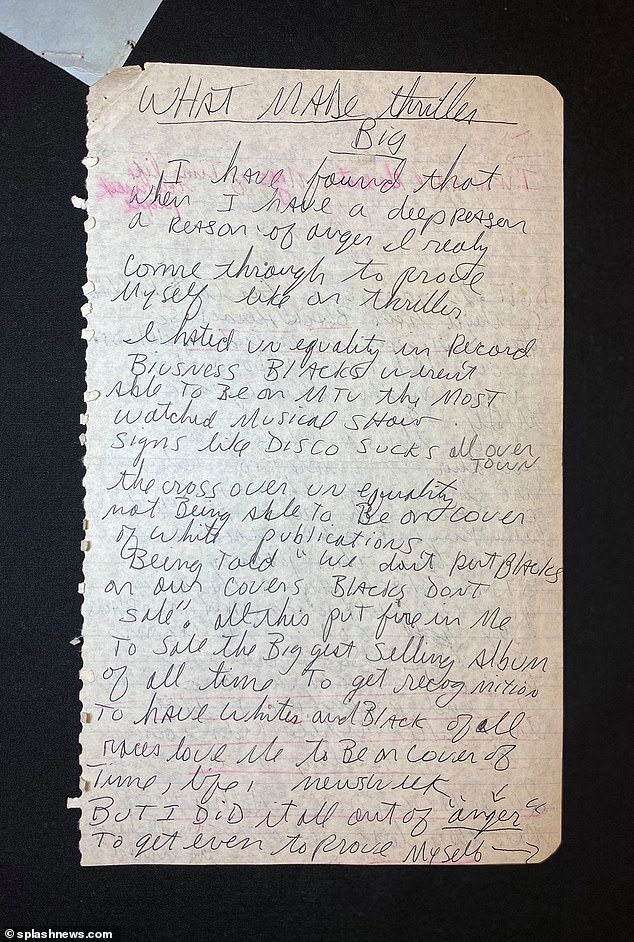 WHAT MADE thriller
Big
I have found that
when I have a deep REASON
a REASON of anger I realy
come through to prove
Myself like on thriller.
I hated un equality in Record
Biusness BlAcks weren't
Able To Be on MTV the Most
watched Musical SHow.
Signs like DISCO SUCKS all over
TOWN
the cross over un equality
not Being Able to Be on cover
of White publications
Being Told "We don't put BlAcks
on our covers BlAcks Don't
Sale". all this put fire in Me
To Sale the Biggest Selling Album
of all time To get recognition
To hAve Whites and BlAck of all
races love Me to Be on Cover of
Time, life, newsweek
BuT I DiD it all out of "anger"
To get even to prove Myself →
splashnews.com